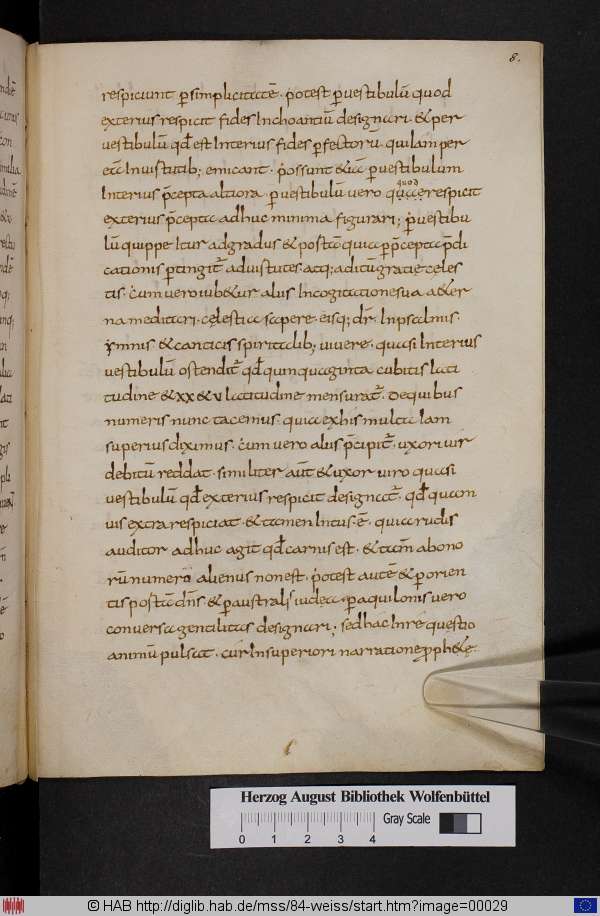 8.
respiciunt p̄simplicitatē · potest p̄uestibulū quod
exterius respicit fides Inchoantiū designari · &per
uestibulū qd̄ est Interius fides p̄fectorū · qui Iam per
ea Inuirtutib; emicant · possunt &iā p̄uestibulum
Interius p̄cepta altiora · p̄uestibulū uero quod respicit
exterius p̄cepta adhuc minima figurari; p̄uestibu
lū quippe Itur adgradus &portā quia p̄p̄cepta p̄di
cationis p̄tingit̄ aduirtutes atq; aditū gratię cęles
tis · cum uero iub&ur alius Incogitatione sua a&er
na meditari · cęlestia sapere · eisq; dr̄ · Inpsalmis ·
ymnis &canticis spiritalib; uiuere · quasi Interius
uestibulū ostendit̄ qd̄ quinquaginta cubitis lati
tudine &xx &v latitudine mensurat̄ · Dequibus
numeris nunc tacemus · quia exhis multa Iam
superius diximus · cum uero alius p̄cipit̄ · uxori uir
debitū reddat · similiter aut̄ &uxor uiro quasi
uestibulū qd̄ exterius respicit designat̄ · qd̄ quam
uis extra respiciat · &tamen Intus · ē · quia rudis
auditor adhuc agit qd̄ carnis est · &tam̄ abono
rū numero alienus nonest · potest autē &p̄orien
tis portā dn̄s · &p̄australē iudea · p̄aquilonis uero
conuersa gentilitas designari; sedhac Inre questio
animū pulsat · cur Insuperiori narratione ꝓph&ę
Herzog August Bibliothek Wolfenbüttel
Gray Scale
0 1 2 3 4
© HAB http://diglib.hab.de/mss/84-weiss/start.htm?image=00029